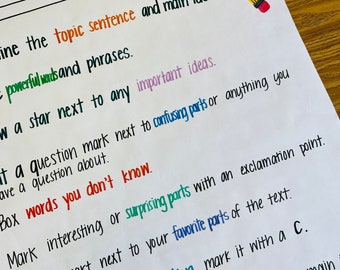 the topic sentence and main
powerful words and phrases.
a star next to any important ideas.
a question mark next to confusing parts or anything you
have a question about.
Box words you don't know.
Mark interesting or surprising parts with an exclamation point.
next to your favorite parts of the text.
mark it with a C.